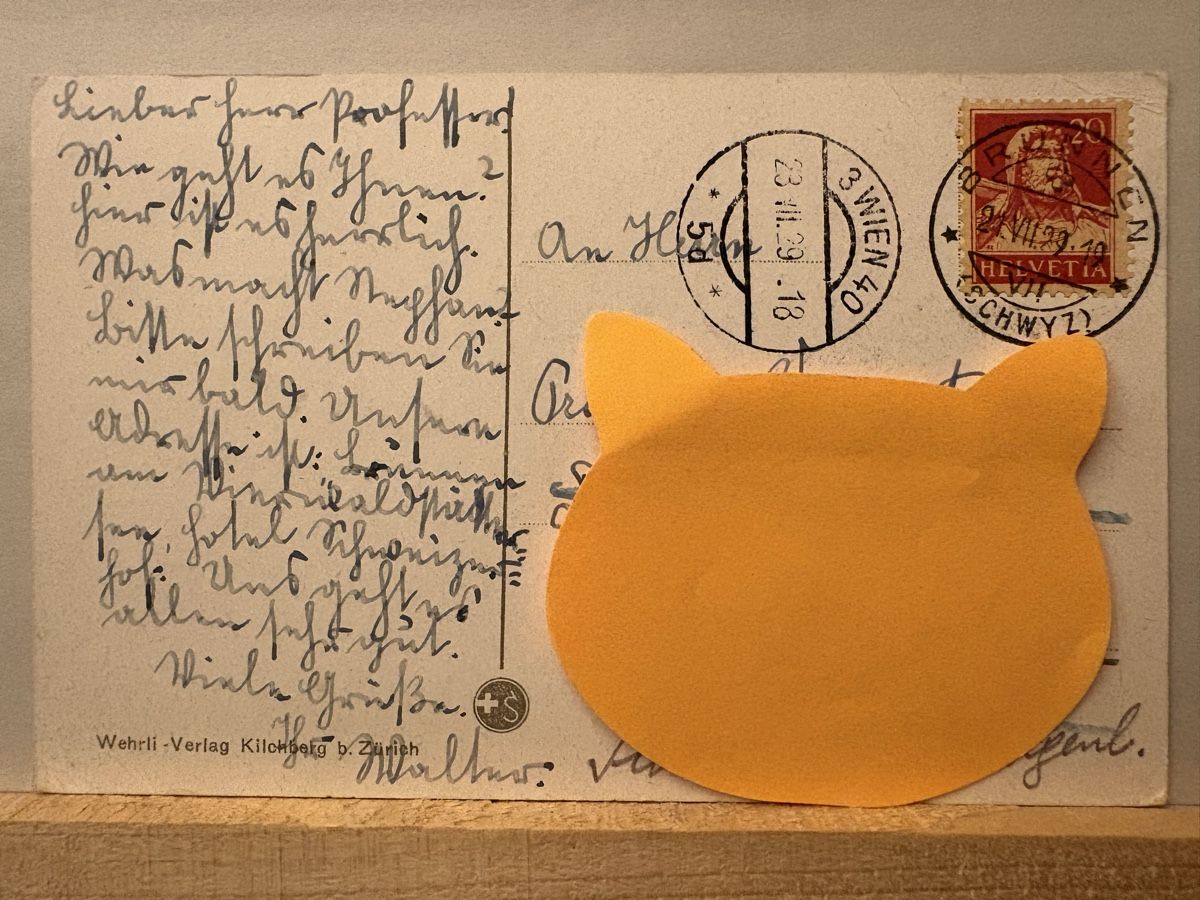 Lieber Herr Professor!
Wie geht es Ihnen?
Hier ist es herrlich.
Was macht Stephan?
Bitte schreiben Sie
mir bald. Unsere
Adresse ist: Brunnen
am Vierwaldstätter
see, Hotel Schweizer
hof. Uns geht es
allen sehr gut.
Viele Grüße.
Ihr Walter.
Wehrli-Verlag Kilchberg b. Zürich
+S
An Herrn
3 WIEN 40
23.VII.29.18
* 5d *
20
HELVETIA
BRUNNEN
21.VII.29.19
VII
(SCHWYZ)